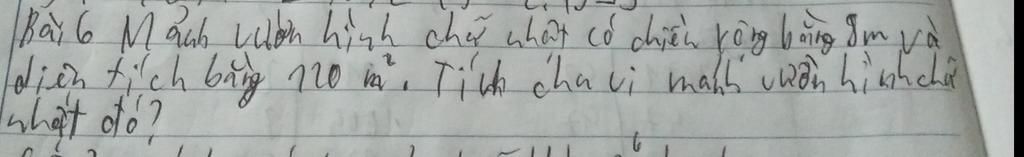 Bài 6 Mảnh vườn hình chữ nhật có chiều rộng bằng 8m và
diện tích bằng 120 m². Tính chu vi mảnh vườn hình chữ
nhật đó?